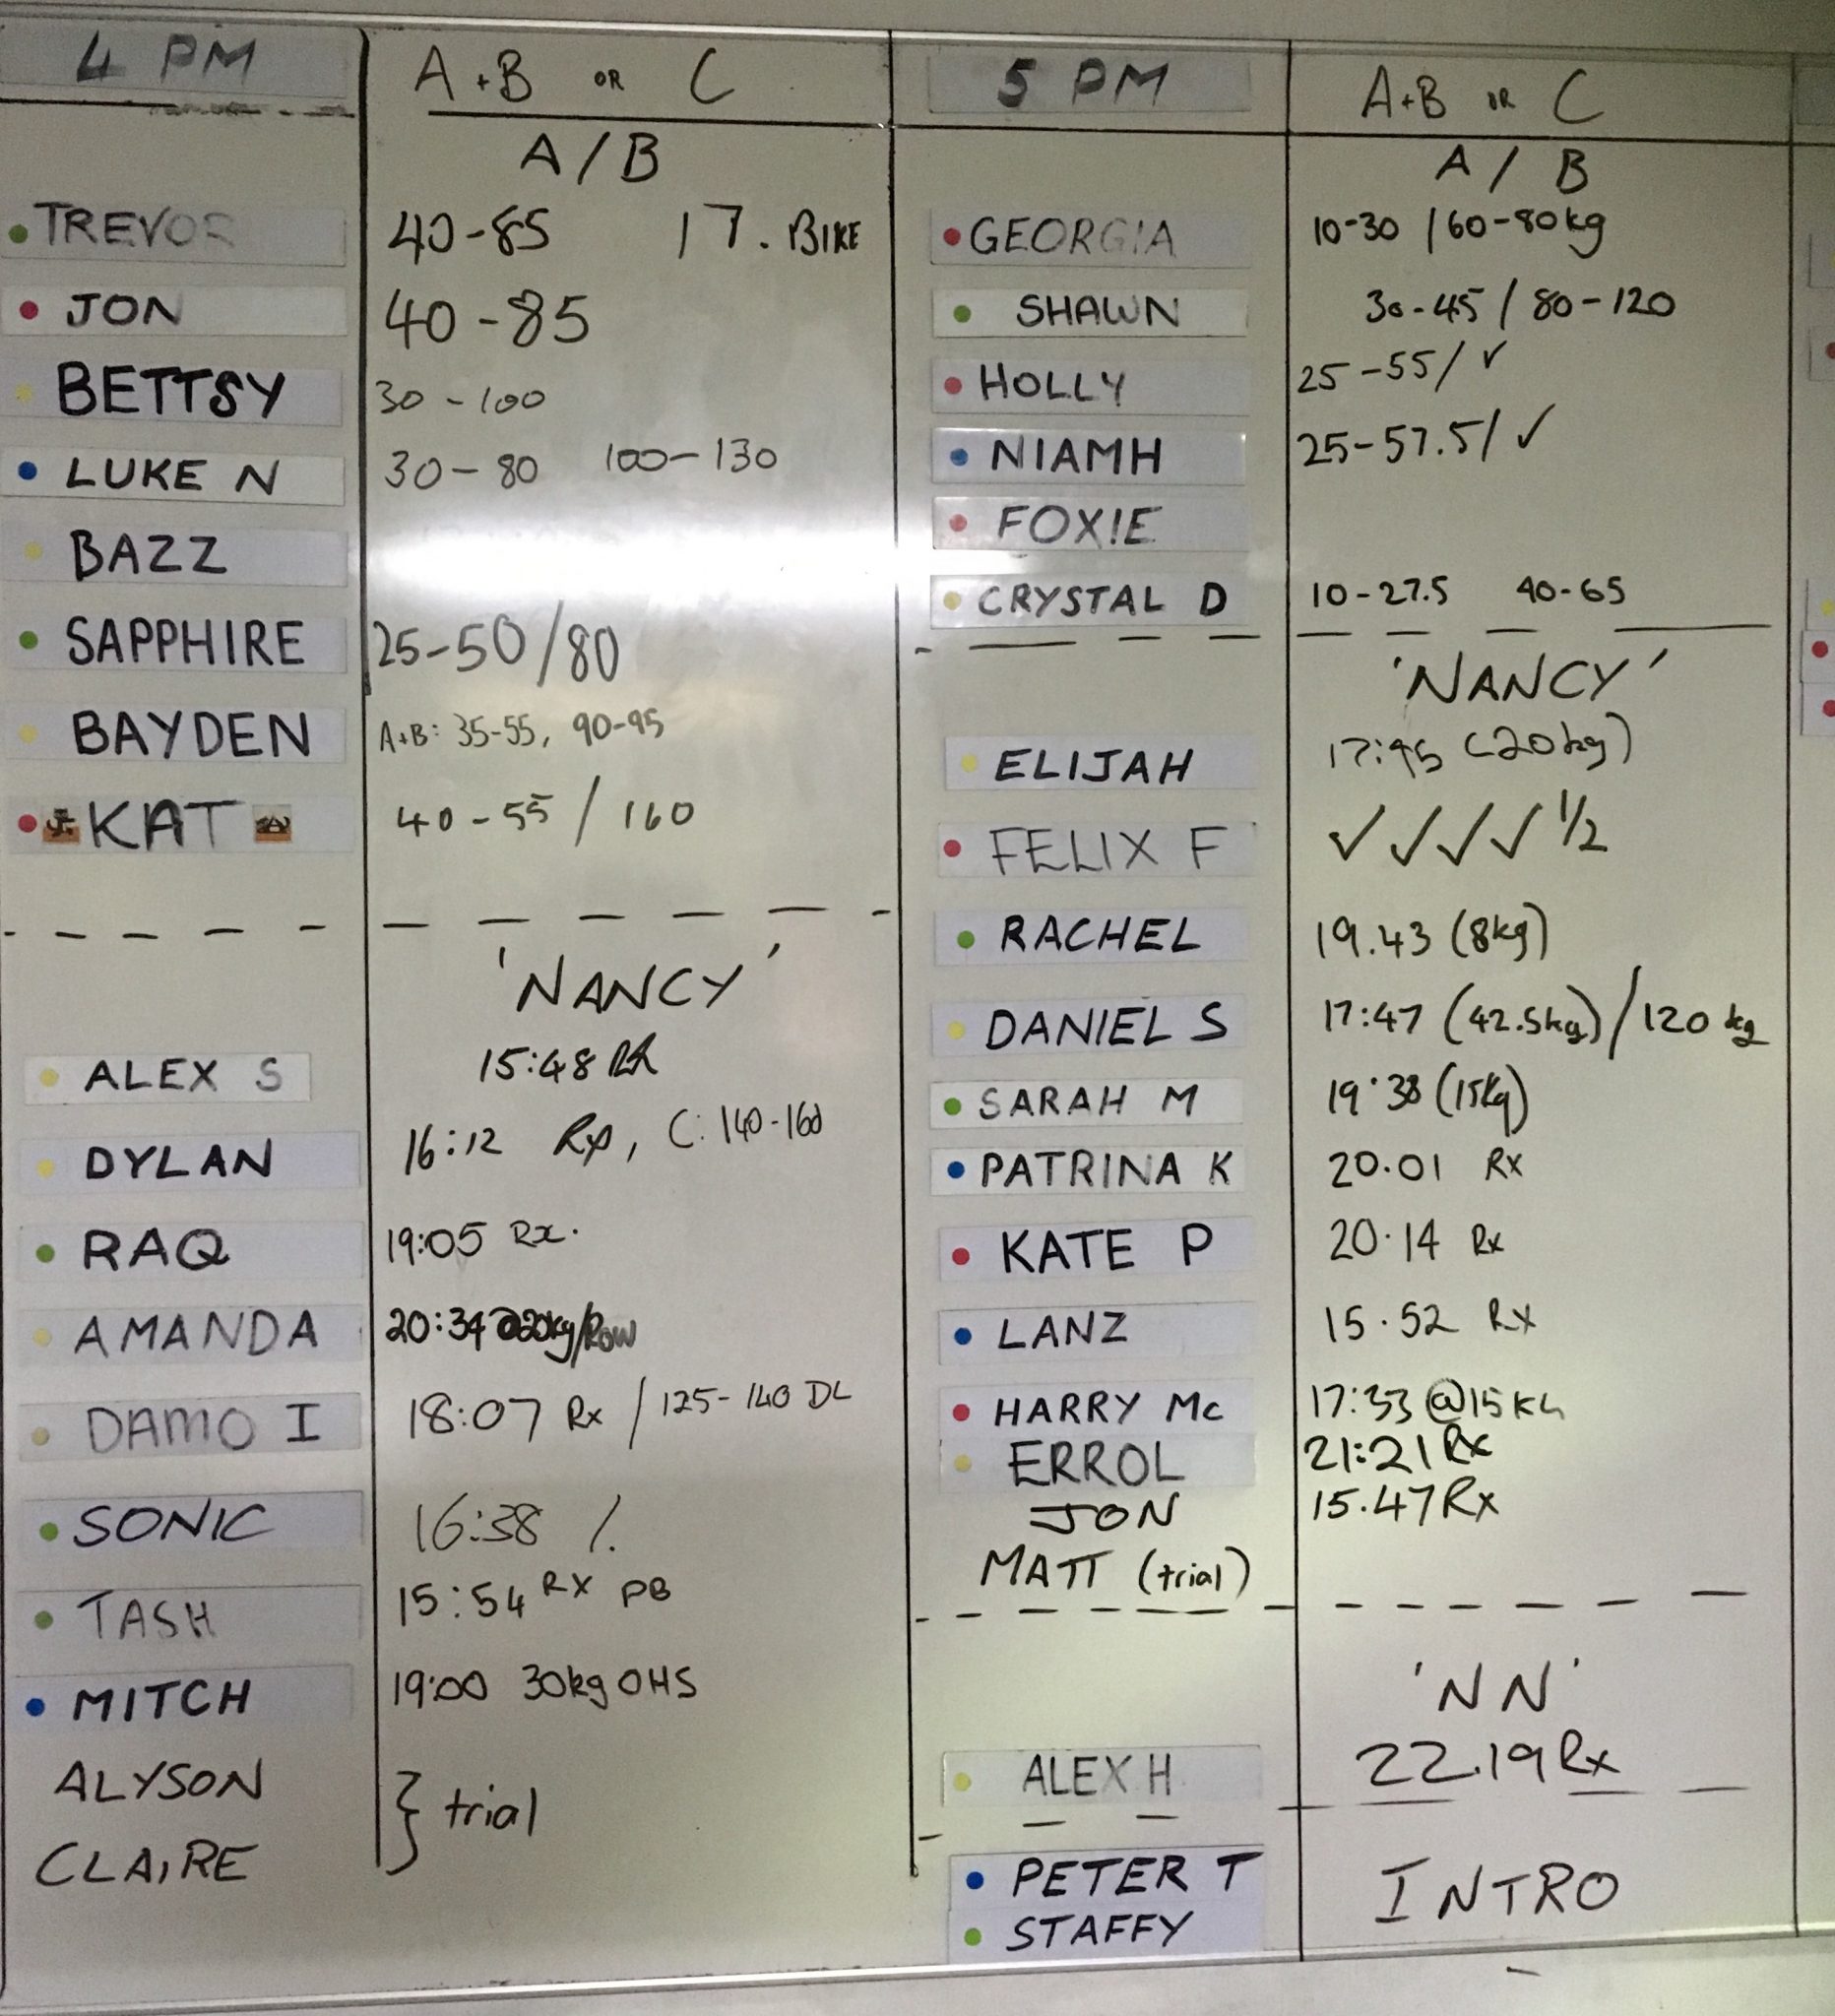 4 PM A+B OR C
A/B
TREVOR 40-85 17. BIKE
JON 40-85
BETTSY 30-100
LUKE N 30-80 100-130
BAZZ
SAPPHIRE 25-50/80
BAYDEN A+B: 35-55, 90-95
KAT 40-55 / 160
'NANCY'
ALEX S 15:48 RX
DYLAN 16:12 Rx, C: 140-160
RAQ 19:05 Rx.
AMANDA 20:34@20kg/Row
DAMO I 18:07 Rx / 125-140 DL
SONIC 16:38 /.
TASH 15:54 RX PB
MITCH 19:00 30kg OHS
ALYSON
} trial
CLAIRE
5 PM A+B OR C
A / B
GEORGIA 10-30 /60-80kg
SHAWN 30-45 / 80-120
HOLLY 25-55/ ✓
NIAMH 25-57.5/ ✓
FOXIE
CRYSTAL D 10-27.5 40-65
'NANCY'
ELIJAH (20kg)
FELIX F ✓✓✓✓ 1/2
RACHEL 19.43 (8kg)
DANIEL S 17:47 (42.5kg)/120 kg
SARAH M 19:38 (15kg)
PATRINA K 20.01 Rx
KATE P 20.14 Rx
LANZ 15.52 Rx
HARRY Mc 17:33 @15KG
ERROL 21:21 Rx
JON 15.47 Rx
MATT (trial)
'NN'
ALEX H 22.19 Rx
PETER T INTRO
STAFFY